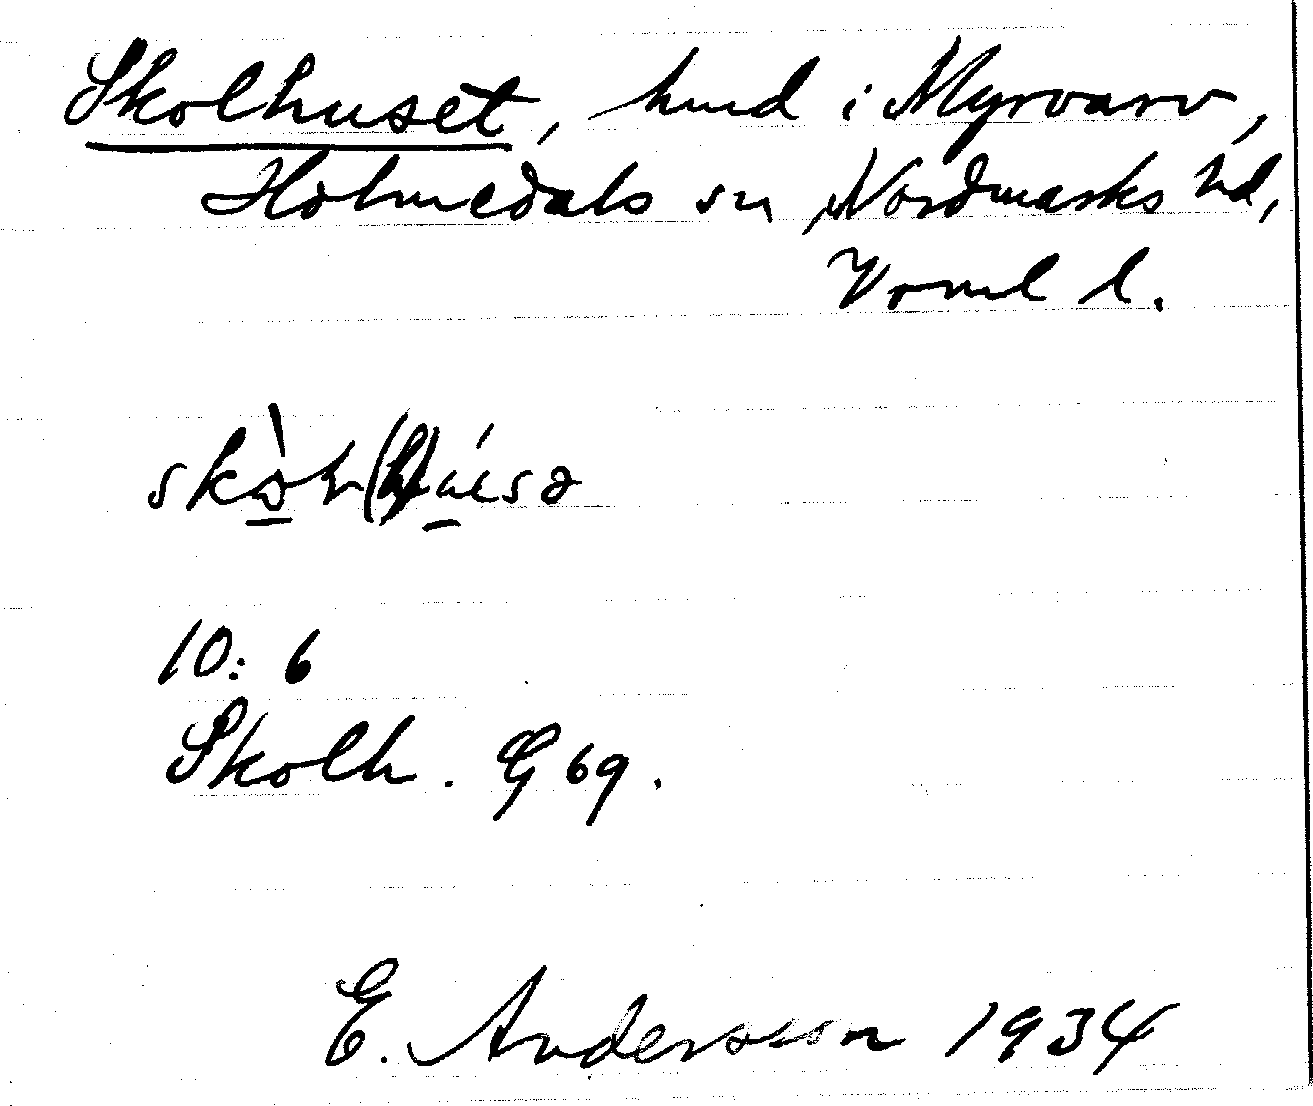 Skolhuset, hmd i Myrvarv,
Holmedals sn Nordmarks hd,
Vrml l.
10: 6
Skolh. G 69.
E. Andersson 1934